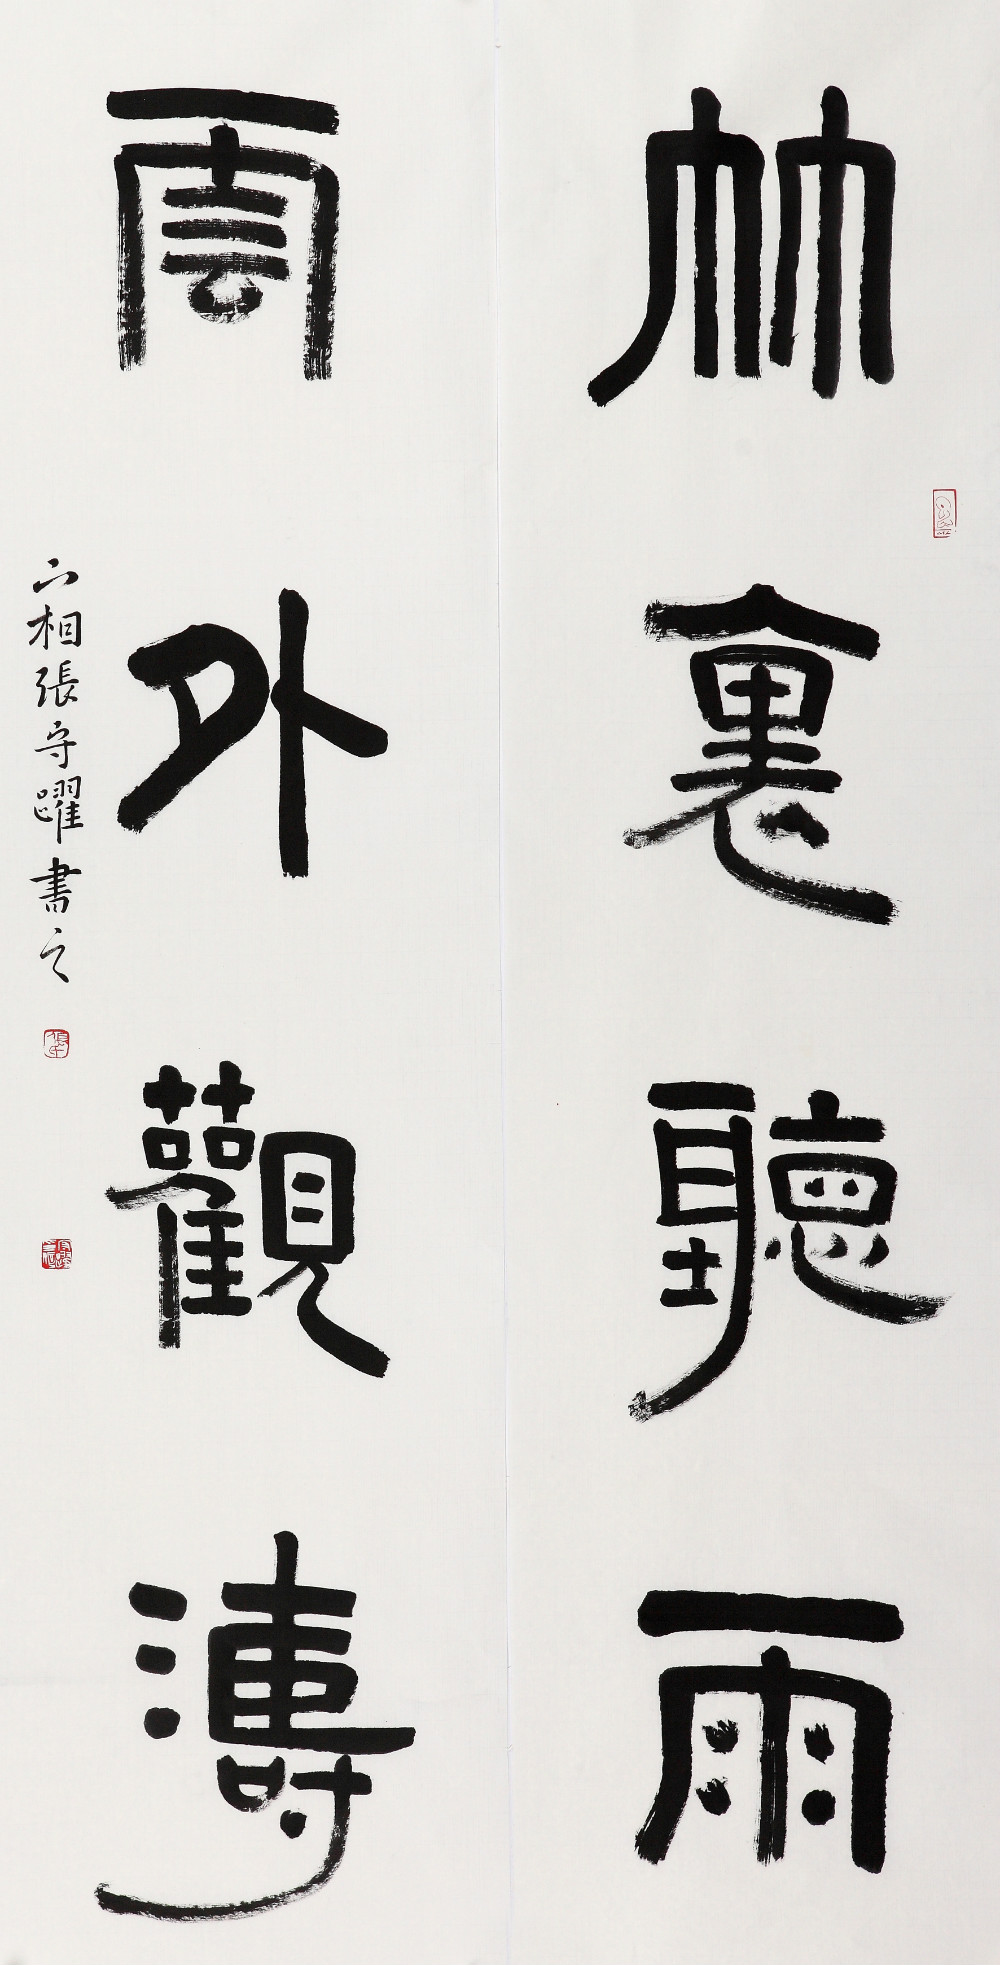 竹裏聽雨
雲外觀濤
六相張守曜書之